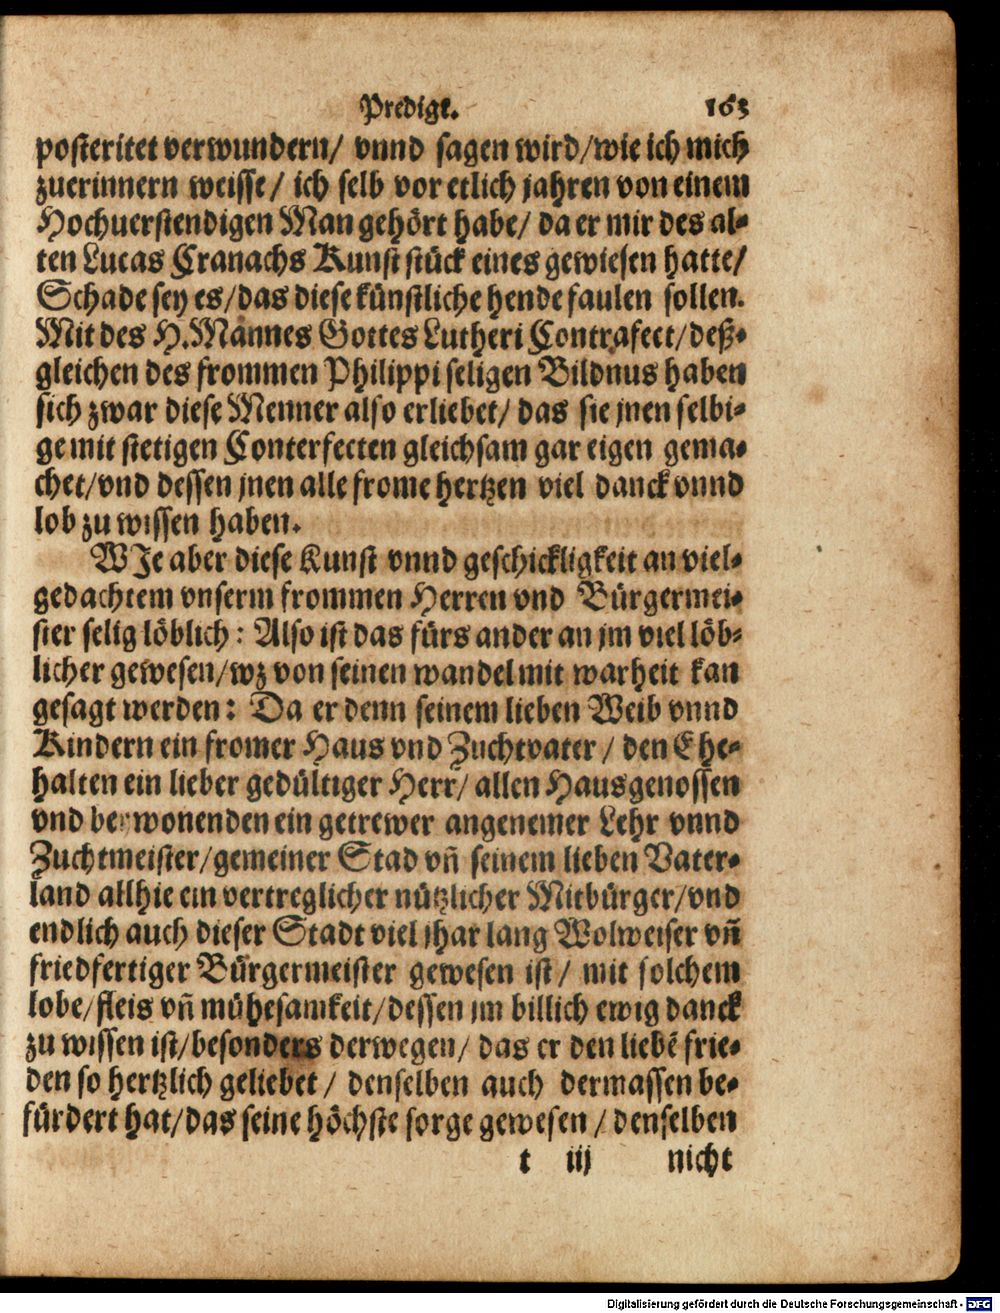 Predigt. 163
posteritet verwundern/ vnnd sagen wird/wie ich mich
zuerinnern weisse/ ich selb vor etlich jahren von einem
Hochuerstendigen Man gehört habe/ da er mir des al-
ten Lucas Cranachs Kunst stück eines gewiesen hatte/
Schade sey es/das diese künstliche hende faulen sollen.
Mit des H.Mannes Gottes Lutheri Contrafect/deß-
gleichen des frommen Philippi seligen Bildnus haben
sich zwar diese Menner also erliebet/ das sie jnen selbi-
ge mit stetigen Conterfecten gleichsam gar eigen gema-
chet/vnd dessen jnen alle frome hertzen viel danck vnnd
lob zu wissen haben.
WJe aber diese Kunst vnnd geschickligkeit an viel-
gedachtem vnserm frommen Herren vnd Bürgermei-
ster selig löblich: Also ist das fürs ander an jm viel löb-
licher gewesen/wz von seinen wandel mit warheit kan
gesagt werden: Da er denn seinem lieben Weib vnnd
Kindern ein fromer Haus vnd Zuchtvater / den Ehe-
halten ein lieber gedültiger Herr/ allen Hausgenossen
vnd beywonenden ein getrewer angenemer Lehr vnnd
Zuchtmeister/gemeiner Stad vñ seinem lieben Vater-
land allhie ein vertreglicher nützlicher Mitbürger/vnd
endlich auch dieser Stadt viel jhar lang Wolweiser vñ
friedfertiger Bürgermeister gewesen ist/ mit solchem
lobe/fleis vñ mühesamkeit/dessen jm billich ewig danck
zu wissen ist/besonders derwegen/ das er den liebē frie-
den so hertzlich geliebet / denselben auch dermassen be-
fürdert hat/das seine höchste sorge gewesen / denselben
t iij nicht
Digitalisierung gefördert durch die Deutsche Forschungsgemeinschaft - DFG